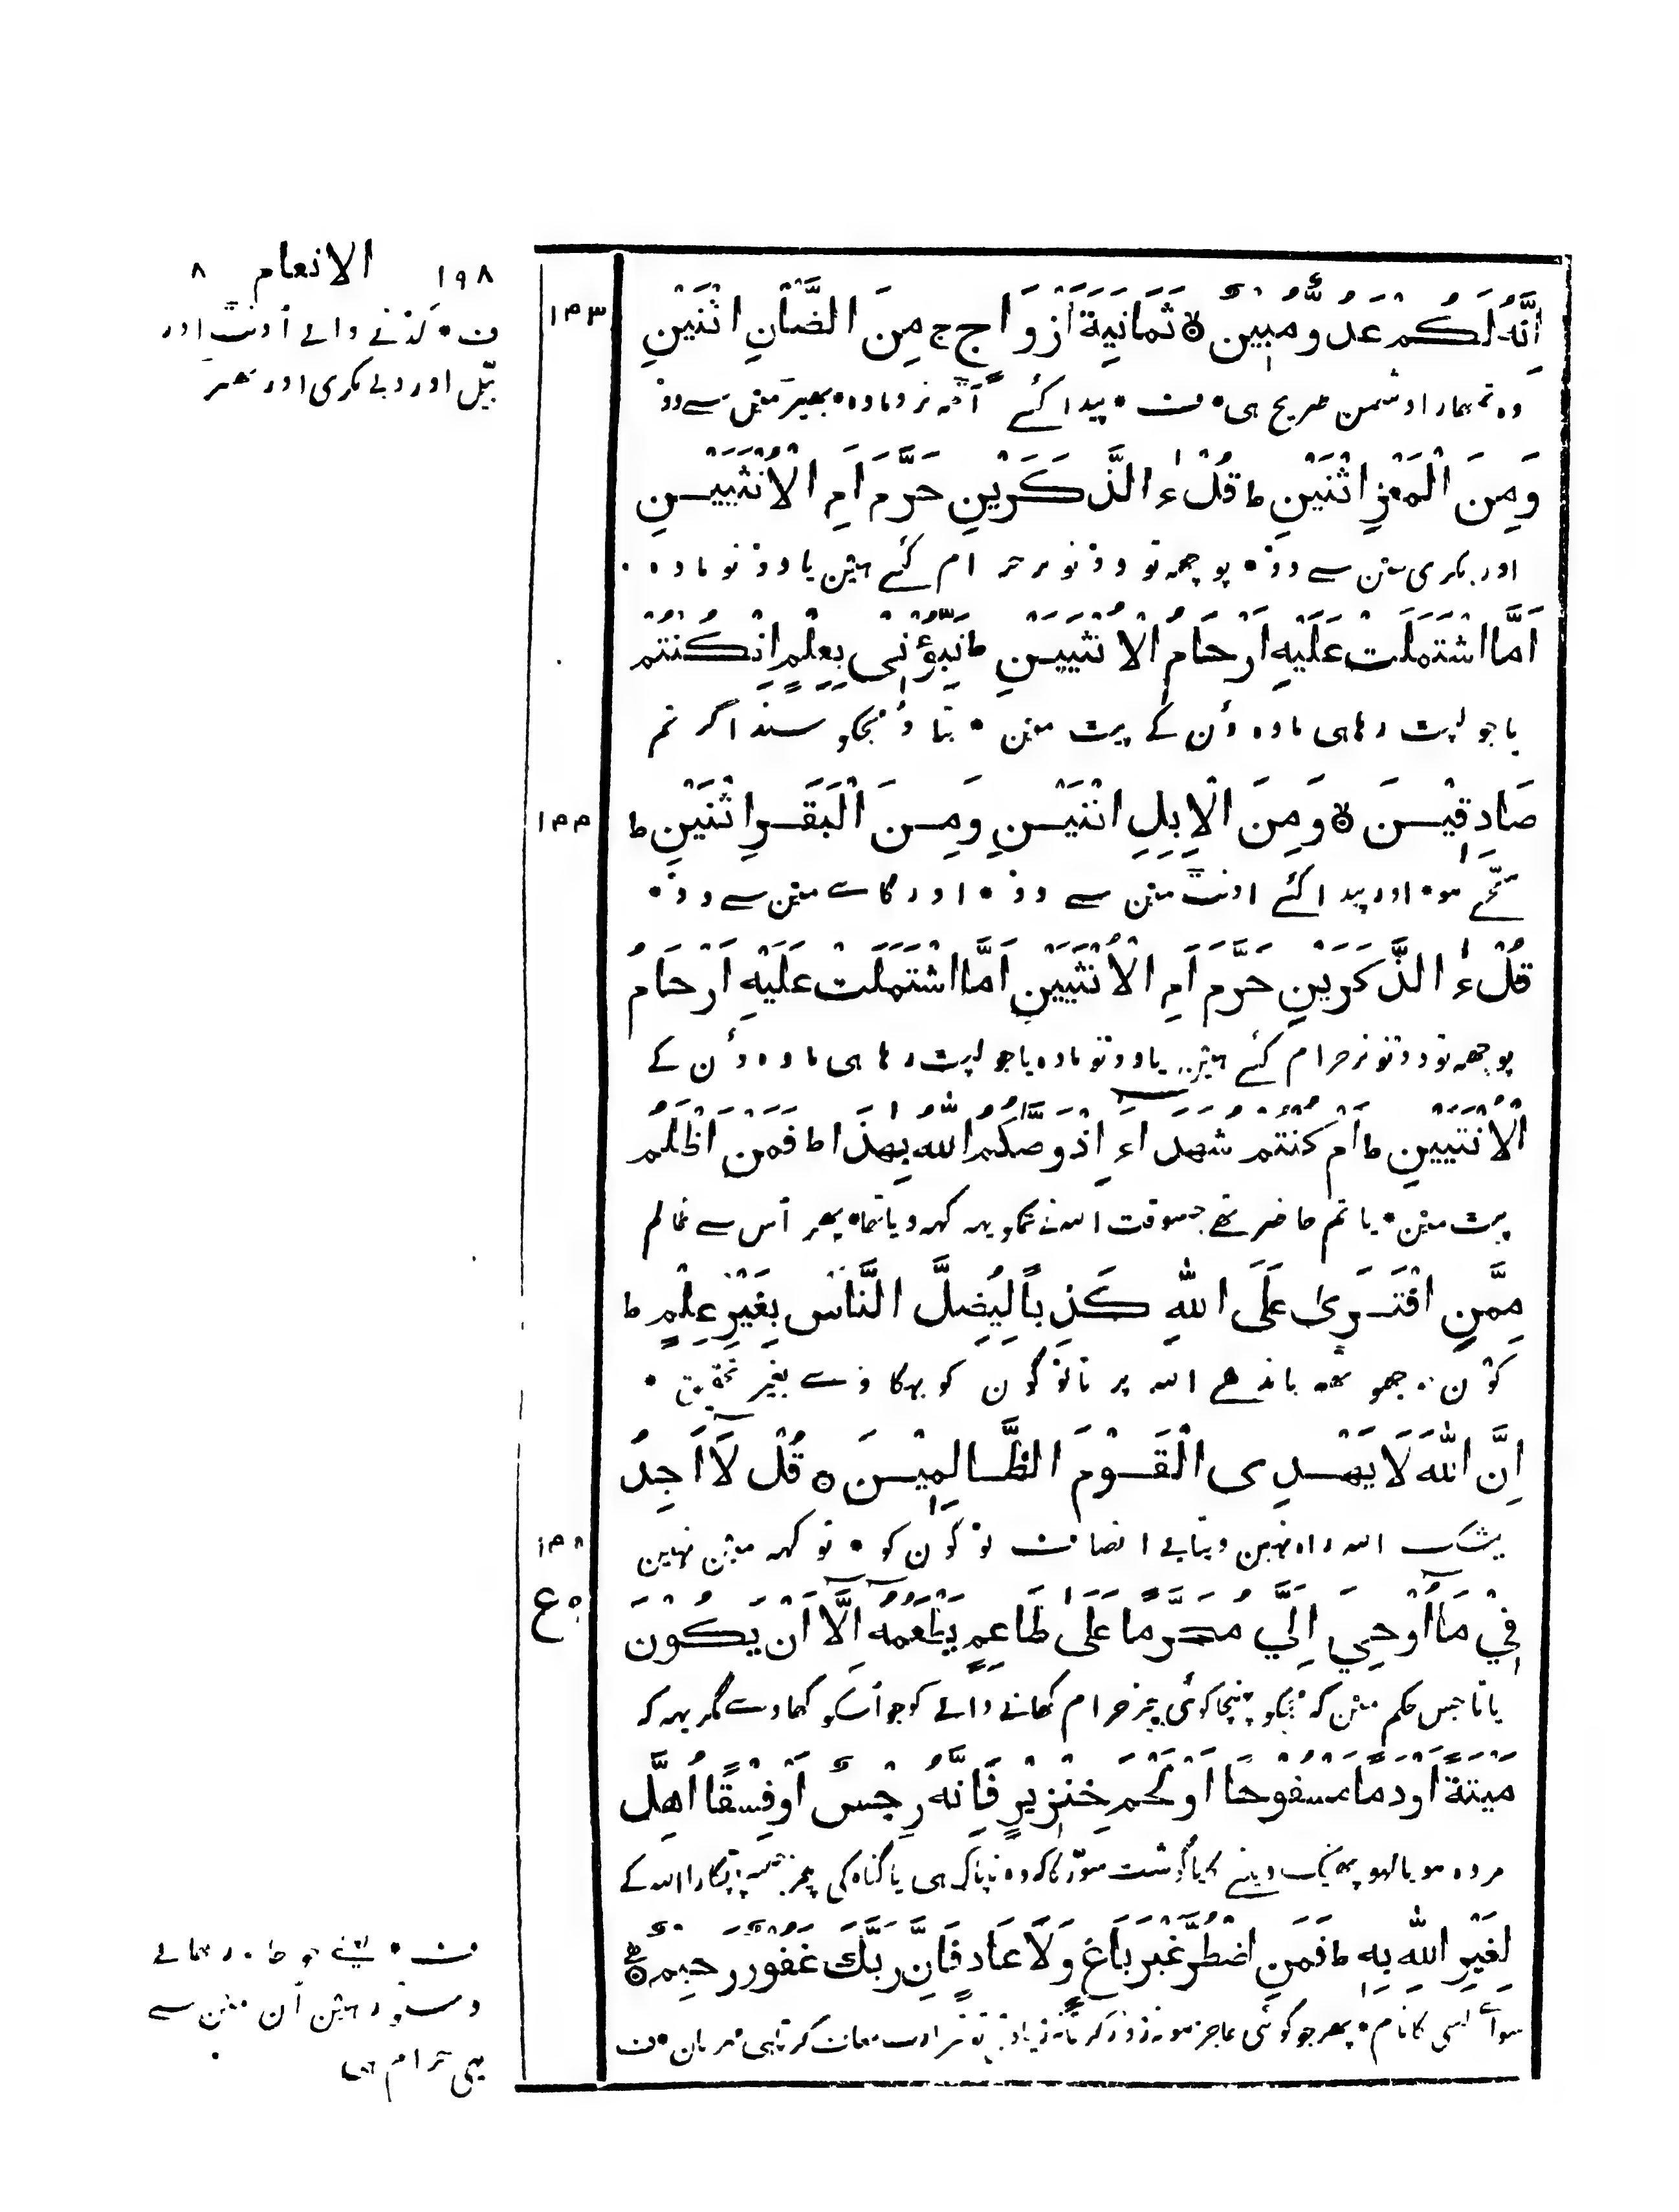 ١٩٨ الانعام ٨
ف • لدنے والے اُونٹ اور
بیل اور دبے بکری اور بھیڑ
١٤٣
اِنَّهُ لَكُمْ عَدُوٌّ مُّبِيْنٌ ۝ ثَمَانِيَةَ اَزْوَاجٍ ج مِنَ الضَّاْنِ اثْنَيْنِ
وہ تمہارا دشمن صریح ہی • ف • پیدا کئے آٹھ نر و مادہ • بھیڑ مین سے دو
وَمِنَ الْمَعْزِ اثْنَيْنِ ط قُلْ ءٰالذَّكَرَيْنِ حَرَّمَ اَمِ الْاُنْثَيَيْنِ
اور بکری مین سے دو • پوچھہ تو دونو نر حرام کئے ہین یا دونو مادہ •
اَمَّا اشْتَمَلَتْ عَلَيْهِ اَرْحَامُ الْاُنْثَيَيْنِ ط نَبِّؤُنِيْ بِعِلْمٍ اِنْ كُنْتُمْ
یا جو لپٹ رہا ہی مادہ وُن کے پیٹ مین • بتاؤ مجکو سند اگر تم
١٤٤
صَادِقِيْنَ ۝ وَمِنَ الْاِبِلِ اثْنَيْنِ وَمِنَ الْبَقَرِ اثْنَيْنِ ط
سچے ہو • اور پیدا کئے اونٹ مین سے دو • اور گاے مین سے دو •
قُلْ ءٰالذَّكَرَيْنِ حَرَّمَ اَمِ الْاُنْثَيَيْنِ اَمَّا اشْتَمَلَتْ عَلَيْهِ اَرْحَامُ
پوچھہ تو دونو نر حرام کئے ہین یا دونو مادہ یا جو لپٹ رہا ہی مادہ وُن کے
الْاُنْثَيَيْنِ ط اَمْ كُنْتُمْ شُهَدَآءَ اِذْ وَصّٰكُمُ اللّٰهُ بِهٰذَا ط فَمَنْ اَظْلَمُ
پیٹ مین • یا تم حاضر تھے جسوقت اللہ نے تمکو یہہ کہہ دیا تھا • پھر اُس سے ظالم
مِمَّنِ افْتَرٰى عَلَى اللّٰهِ كَذِبًا لِيُضِلَّ النَّاسَ بِغَيْرِ عِلْمٍ ط
کون • جھوٹھہ باندھے اللہ پر تا لوگون کو بہکاوے بغیر تحقیق •
اِنَّ اللّٰهَ لَا يَهْدِي الْقَوْمَ الظَّالِمِيْنَ ۝ قُلْ لَّآ اَجِدُ
بیشک اللہ راہ نہین دیتا بے انصاف لوگون کو • تو کہہ مین نہین
١٤٥
٥ ع
فِيْ مَآ اُوْحِيَ اِلَيَّ مُحَرَّمًا عَلٰى طَاعِمٍ يَّطْعَمُهٗٓ اِلَّآ اَنْ يَّكُوْنَ
پاتا جس حکم مین کہ مجکو پہنچا کوئی چیز حرام کھانے والے کو جو اُسکو کھاوے مگر یہہ کہ
مَيْتَةً اَوْ دَمًا مَسْفُوْحًا اَوْ لَحْمَ خِنْزِيْرٍ فَاِنَّهُ رِجْسٌ اَوْ فِسْقًا اُهِلَّ
مردہ ہو یا لہو پھینک دینے کا یا گوشت سور کا کہ وہ ناپاک ہی یا گناہ کی چیز جسپر پکارا اللہ کے
لِغَيْرِ اللّٰهِ بِهٖ ط فَمَنِ اضْطُرَّ غَيْرَ بَاغٍ وَّلَا عَادٍ فَاِنَّ رَبَّكَ غَفُوْرٌ رَّحِيْمٌ ۝
سواے کسی کا نام • پھر جو کوئی عاجز ہو نہ زور کرتا نہ زیادتی تو تیرا رب معاف کرتا ہی مہربان • ف
ف • یعنے جو جانور کھانے
دستور ہین اُن مین سے
یہی حرام ہی